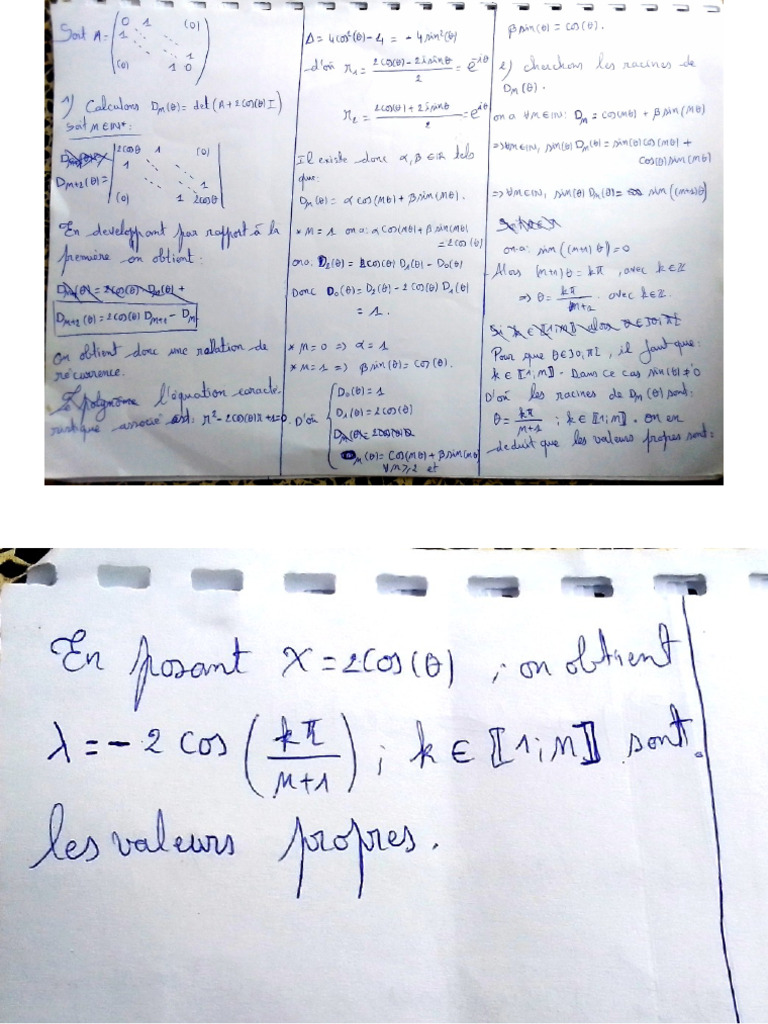 Soit A = ( 0 1 (0)
1
1
(0) 1 0 )
1) Calculons Dn(θ) = det(A+2cos(θ)I)
soit n∈ℕ*:
Dn+2(θ) = | 2cosθ 1 (0)
1
1
(0) 1 2cosθ |
En developpant par rapport à la
première on obtient :
Dn+2(θ) = 2cos(θ) Dn+1 − Dn
On obtient donc une rellation de
récurrence.
l'équation caracté-
ristique associé est: r²-2cos(θ)r+1=0.
Δ = 4cos²(θ) - 4 = - 4sin²(θ)
d'où r₁ = (2cos(θ) - 2isinθ)/2 = e^(-iθ)
r₂ = (2cos(θ) + 2isinθ)/2 = e^(iθ)
Il existe donc α, β ∈ ℝ tels
que:
Dn(θ) = α cos(nθ) + β sin(nθ).
* n = 1 on a: α cos(nθ) + β sin(nθ)
= 2cos(θ)
or D₂(θ) = 2cos(θ) D₁(θ) - D₀(θ)
Donc D₀(θ) = D₂(θ) - 2cos(θ) D₁(θ)
= 1.
* n = 0 => α = 1
* n = 1 => β sin(θ) = cos(θ).
D'où { D₀(θ) = 1
D₁(θ) = 2cos(θ)
n(θ) = cos(nθ) + β sin(nθ)
∀n≥2 et
β sin(θ) = cos(θ).
2) cherchons les racines de
Dn(θ).
on a ∀n∈ℕ: Dn = cos(nθ) + β sin(nθ)
=> ∀n∈ℕ, sin(θ) Dn(θ) = sin(θ)cos(nθ) +
cos(θ)sin(nθ)
=> ∀n∈ℕ, sin(θ) Dn(θ) = sin((n+1)θ)
on a: sin((n+1)θ) = 0
Alors (n+1)θ = kπ, avec k∈ℤ
=> θ = kπ/(n+1) avec k∈ℤ.
Pour que θ∈]0;π[, il faut que:
k∈⟦1;n⟧. Dans ce cas sin(θ) ≠ 0
D'où les racines de Dn(θ) sont:
θ = kπ/(n+1) ; k∈⟦1;n⟧. on en
deduit que les valeurs propres sont:
En posant X = 2cos(θ) ; on obtient
λ = - 2 cos(kπ/(n+1)) ; k ∈ ⟦1;n⟧ sont
les valeurs propres.